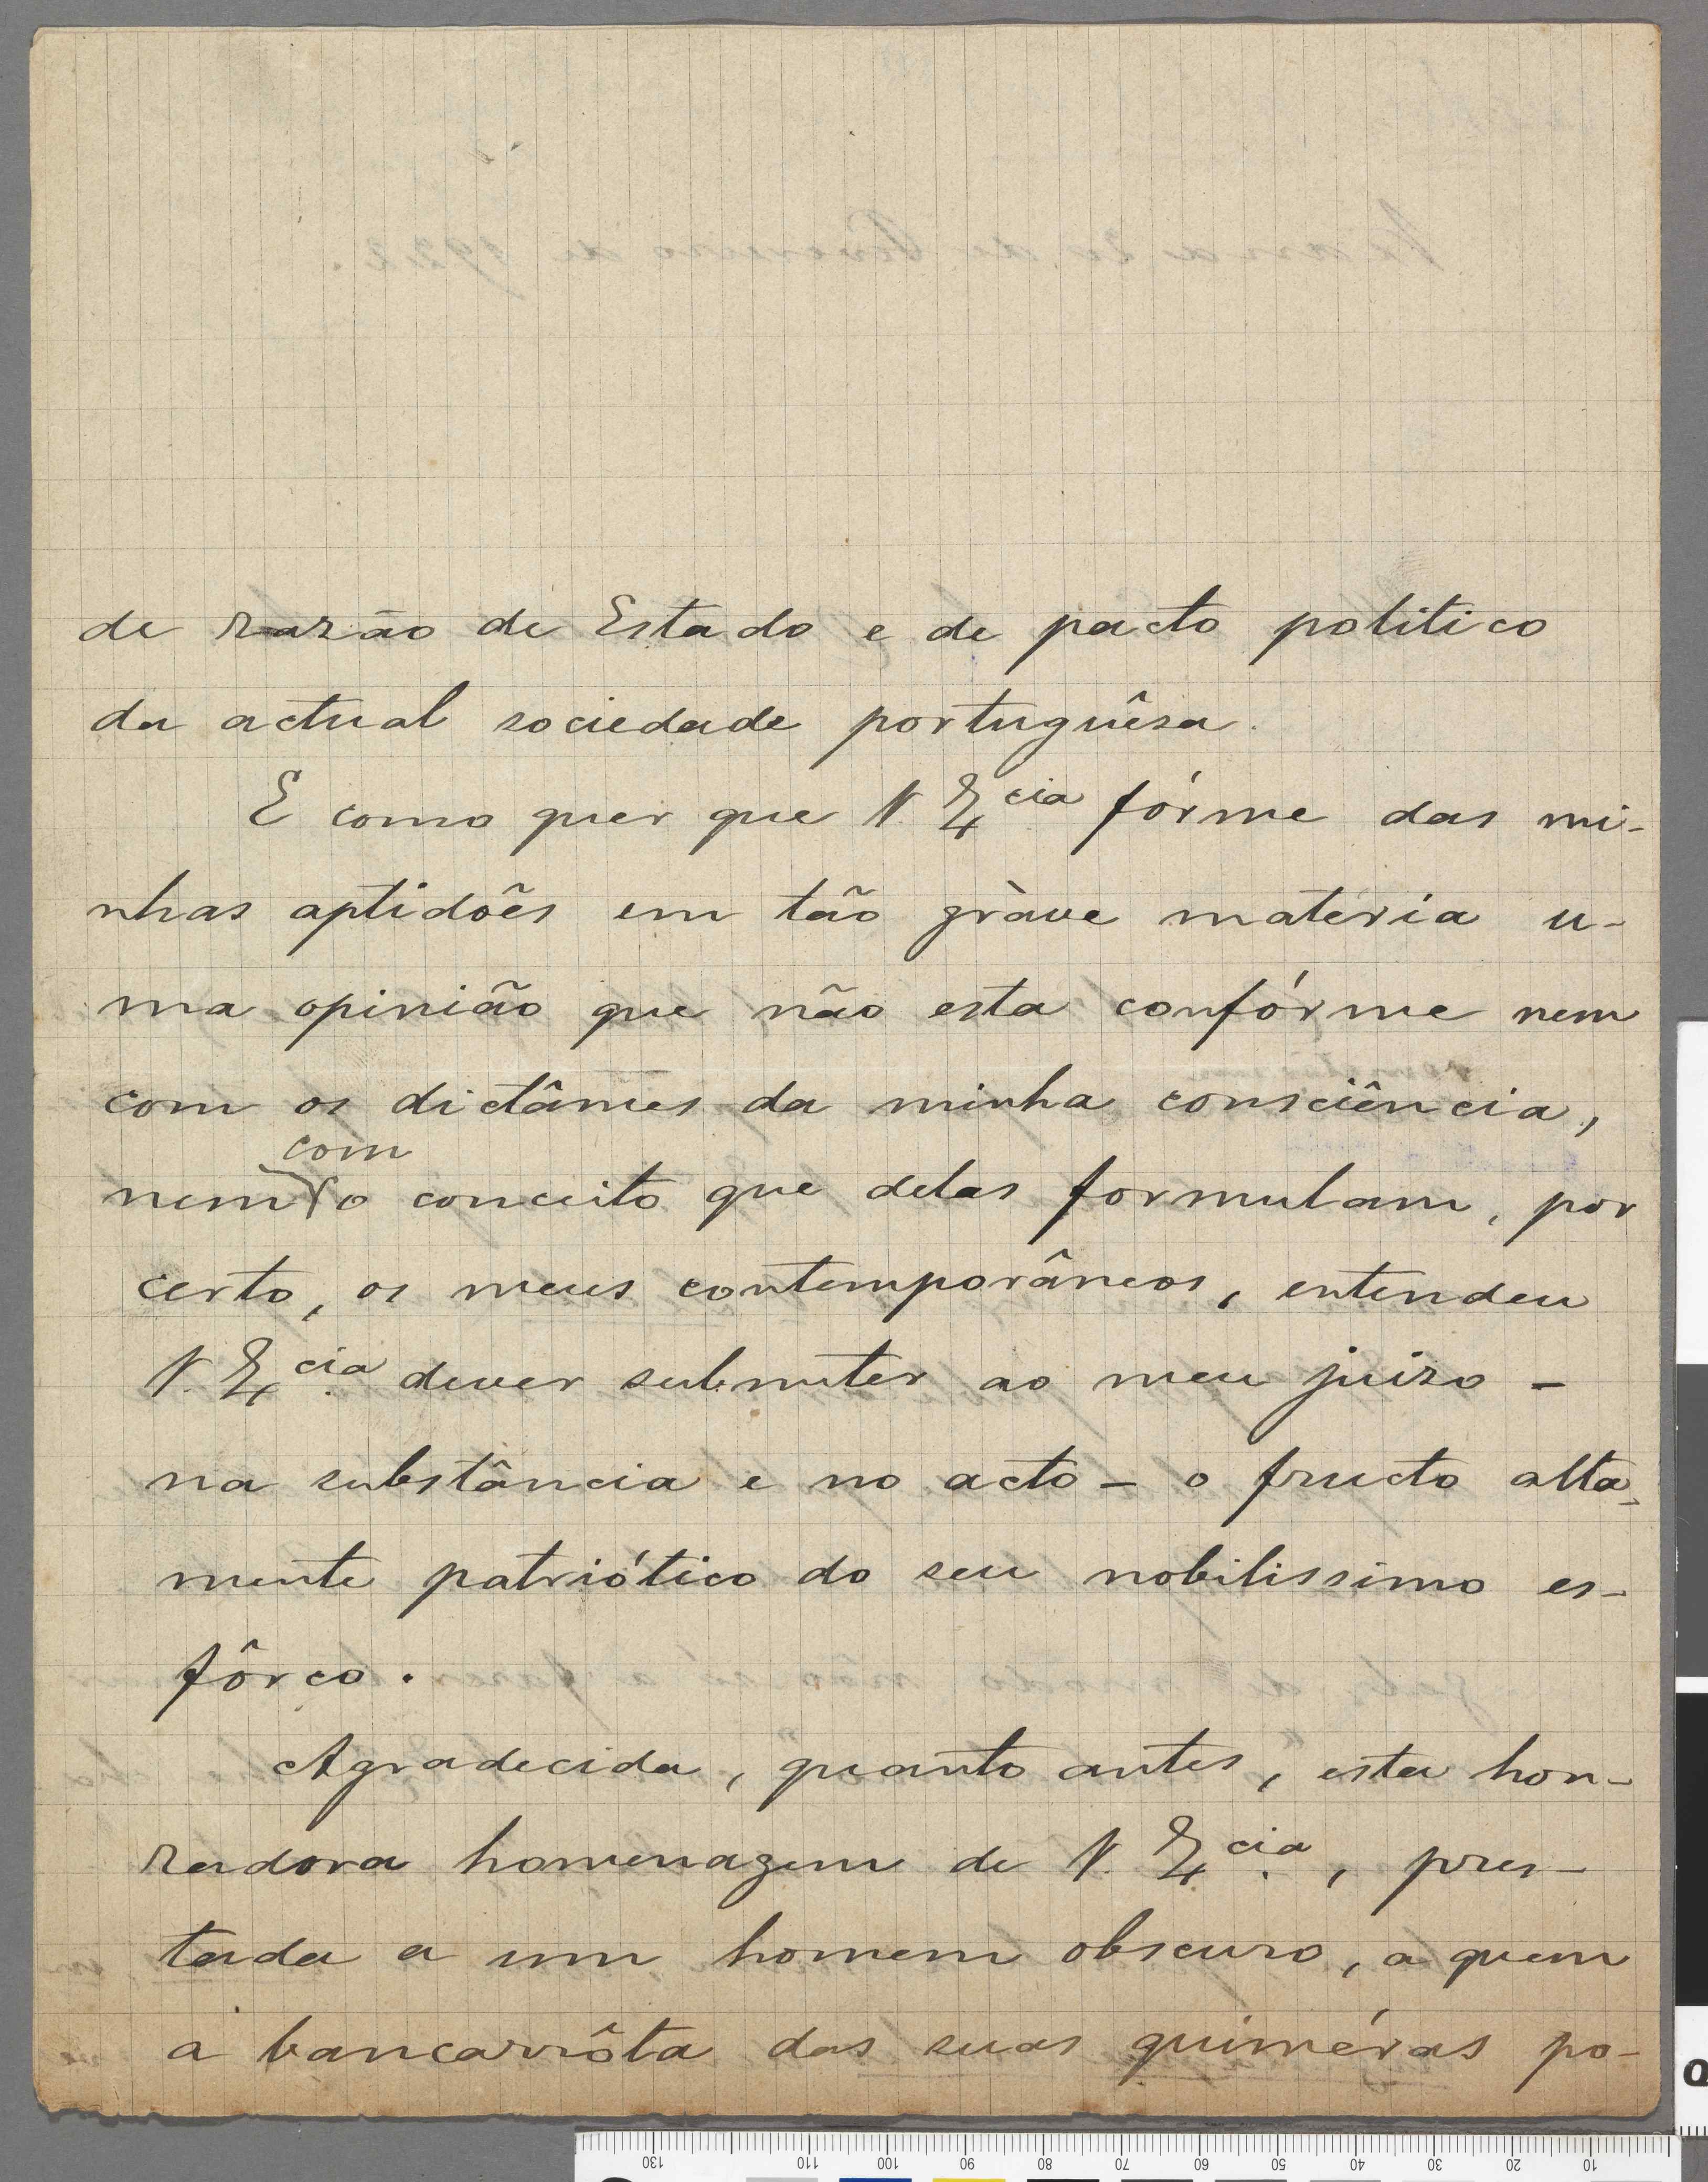 de razão de Estado e de pacto politico
da actual sociedade portuguêsa.
E como quer que V. Ex.cia fórme das mi-
nhas aptidões em tão gràve matéria u-
ma opinião que não esta confórme nem
com os dictâmes da minha consciência,
com
nem o conceito que delas formulam, por
certo, os meus contemporâneos, entendeu
V. Ex.cia dever submeter ao meu juizo -
na substância e no acto - o fructo alta-
mente patriótico do seu nobilissimo es-
fôrço.
Agradecida, quanto antes, esta hon-
radora homenagem de V. Ex.cia, pres-
tada a um homem obscuro, a quem
a bancarrôta das suas quiméras po-
130 110 100 90 80 70 60 50 40 30 20 10